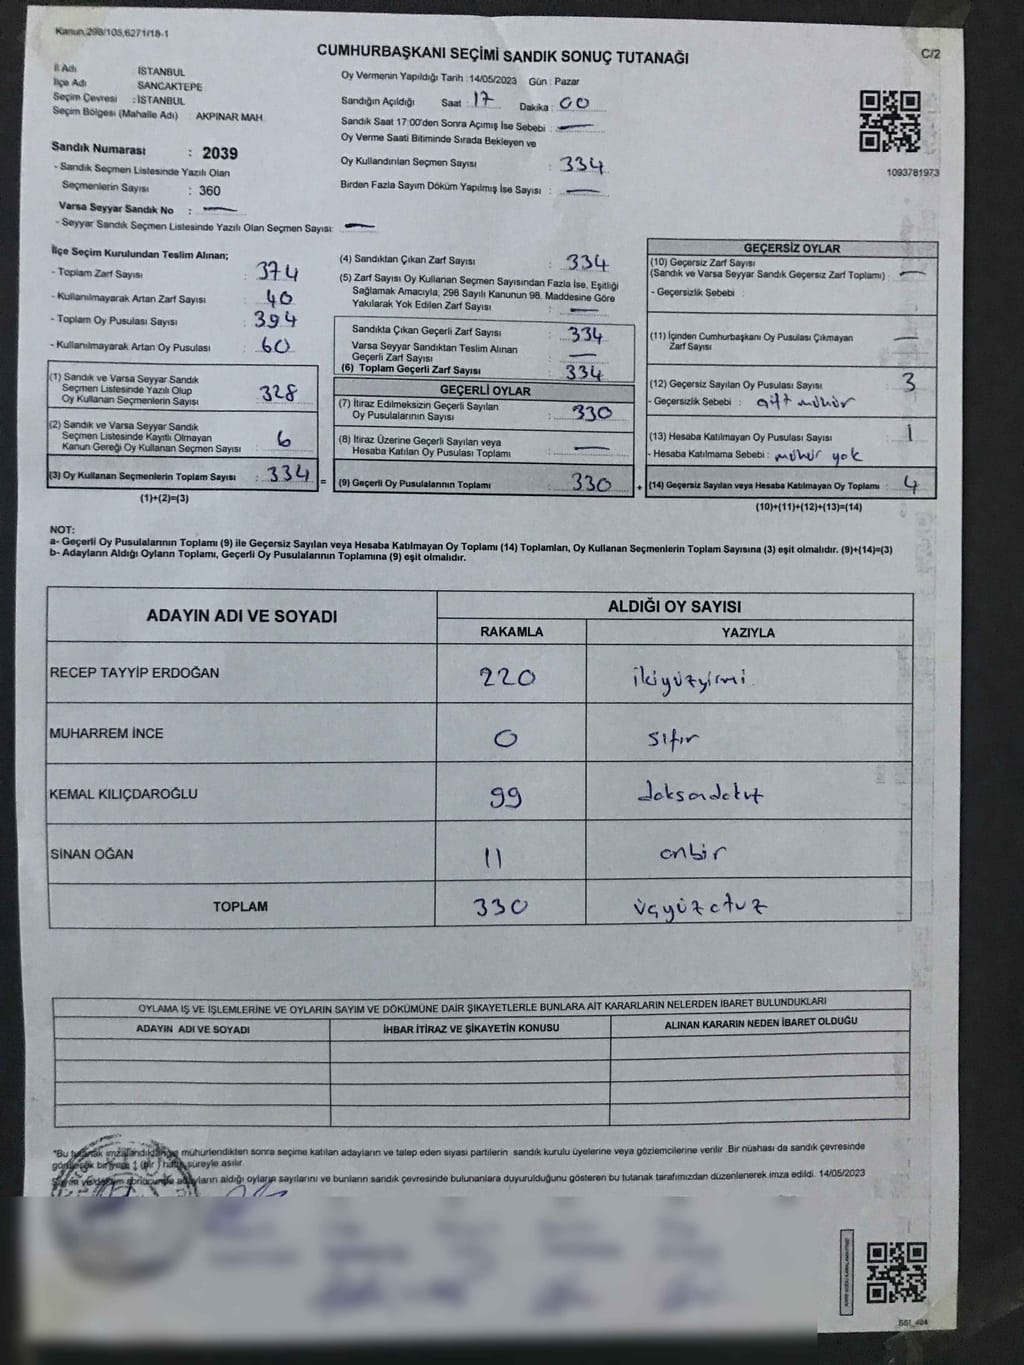 Kanun,298/105,6271/18-1
CUMHURBAŞKANI SEÇİMİ SANDIK SONUÇ TUTANAĞI
C/2
İl Adı İSTANBUL
İlçe Adı SANCAKTEPE
Seçim Çevresi : İSTANBUL
Seçim Bölgesi (Mahalle Adı) : AKPINAR MAH.
Sandık Numarası : 2039
- Sandık Seçmen Listesinde Yazılı Olan
Seçmenlerin Sayısı : 360
Varsa Seyyar Sandık No : —
- Seyyar Sandık Seçmen Listesinde Yazılı Olan Seçmen Sayısı: —
Oy Vermenin Yapıldığı Tarih :14/05/2023 Gün : Pazar
Sandığın Açıldığı Saat : 17 Dakika : 00
Sandık Saat 17:00'den Sonra Açımış İse Sebebi : —
Oy Verme Saati Bitiminde Sırada Bekleyen ve
Oy Kullandırılan Seçmen Sayısı : 334
Birden Fazla Sayım Döküm Yapılmış İse Sayısı : —
1093781973
İlçe Seçim Kurulundan Teslim Alınan;
- Toplam Zarf Sayısı : 374
- Kullanılmayarak Artan Zarf Sayısı : 40
- Toplam Oy Pusulası Sayısı : 394
- Kullanılmayarak Artan Oy Pusulası : 60
(1) Sandık ve Varsa Seyyar Sandık
Seçmen Listesinde Yazılı Olup
Oy Kullanan Seçmenlerin Sayısı : 328
(2) Sandık ve Varsa Seyyar Sandık
Seçmen Listesinde Kayıtlı Olmayan
Kanun Gereği Oy Kullanan Seçmen Sayısı : 6
(3) Oy Kullanan Seçmenlerin Toplam Sayısı : 334 =
(1)+(2)=(3)
(4) Sandıktan Çıkan Zarf Sayısı : 334
(5) Zarf Sayısı Oy Kullanan Seçmen Sayısından Fazla İse, Eşitliği
Sağlamak Amacıyla; 298 Sayılı Kanunun 98. Maddesine Göre
Yakılarak Yok Edilen Zarf Sayısı : —
Sandıkta Çıkan Geçerli Zarf Sayısı : 334
Varsa Seyyar Sandıktan Teslim Alınan
Geçerli Zarf Sayısı : —
(6) Toplam Geçerli Zarf Sayısı : 334
GEÇERLİ OYLAR
(7) İtiraz Edilmeksizin Geçerli Sayılan
Oy Pusulalarının Sayısı : 330
(8) İtiraz Üzerine Geçerli Sayılan veya
Hesaba Katılan Oy Pusulası Toplamı : —
(9) Geçerli Oy Pusulalarının Toplamı : 330 +
GEÇERSİZ OYLAR
(10) Geçersiz Zarf Sayısı
(Sandık ve Varsa Seyyar Sandık Geçersiz Zarf Toplamı) : —
- Geçersizlik Sebebi :
(11) İçinden Cumhurbaşkanı Oy Pusulası Çıkmayan
Zarf Sayısı : —
(12) Geçersiz Sayılan Oy Pusulası Sayısı : 3
- Geçersizlik Sebebi : çift mühür
(13) Hesaba Katılmayan Oy Pusulası Sayısı : 1
- Hesaba Katılmama Sebebi : mühür yok
(14) Geçersiz Sayılan veya Hesaba Katılmayan Oy Toplamı : 4
(10)+(11)+(12)+(13)=(14)
NOT:
a- Geçerli Oy Pusulalarının Toplamı (9) ile Geçersiz Sayılan veya Hesaba Katılmayan Oy Toplamı (14) Toplamları, Oy Kullanan Seçmenlerin Toplam Sayısına (3) eşit olmalıdır. (9)+(14)=(3)
b- Adayların Aldığı Oyların Toplamı, Geçerli Oy Pusulalarının Toplamına (9) eşit olmalıdır.
ADAYIN ADI VE SOYADI ALDIĞI OY SAYISI
RAKAMLA YAZIYLA
RECEP TAYYİP ERDOĞAN 220 ikiyüzyirmi
MUHARREM İNCE 0 sıfır
KEMAL KILIÇDAROĞLU 99 doksandokuz
SİNAN OĞAN 11 onbir
TOPLAM 330 üçyüzotuz
OYLAMA İŞ VE İŞLEMLERİNE VE OYLARIN SAYIM VE DÖKÜMÜNE DAİR ŞİKAYETLERLE BUNLARA AİT KARARLARIN NELERDEN İBARET BULUNDUKLARI
ADAYIN ADI VE SOYADI İHBAR İTİRAZ VE ŞİKAYETİN KONUSU ALINAN KARARIN NEDEN İBARET OLDUĞU
*Bu tutanak imzalandıktan mühürlendikten sonra seçime katılan adayların ve talep eden siyasi partilerin sandık kurulu üyelerine veya gözlemcilerine verilir. Bir nüshası da sandık çevresinde
bir hafta süreyle asılır.
adayların aldığı oyların sayılarını ve bunların sandık çevresinde bulunanlara duyurulduğunu gösteren bu tutanak tarafımızdan düzenlenerek imza edildi. 14/05/2023